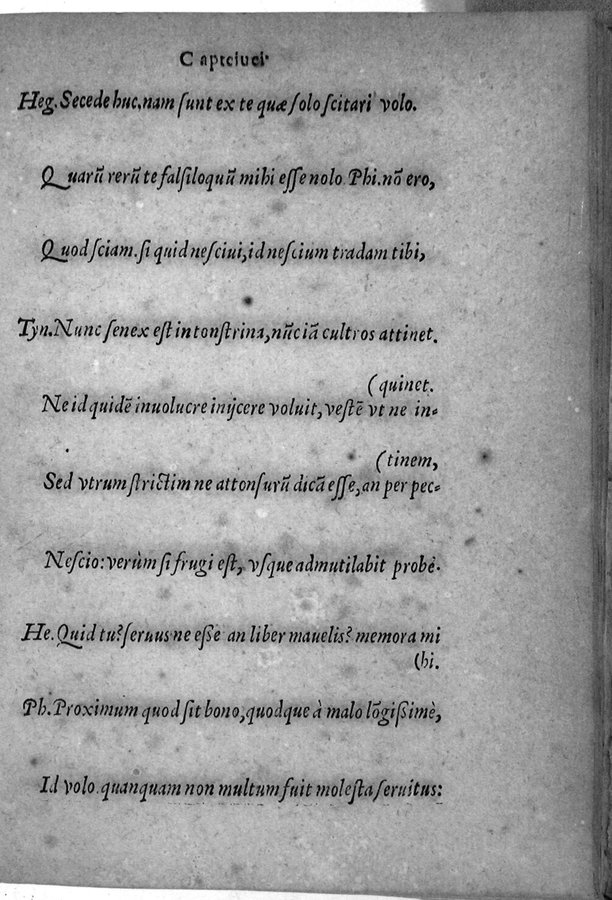 Capteiuei
Heg. Secede huc. nam ſunt ex te quæ ſolo ſcitari volo.
Quarũ rerũ te falſiloquũ mihi eſſe nolo. Phi. nõ ero,
Quod ſciam. ſi quid neſciui, id neſcium tradam tibi,
Tyn. Nunc ſenex eſt in tonſtrina, nũc iã cultros attinet.
(quinet.
Ne id quidẽ inuolucre inijcere voluit, veſtẽ vt ne in-
(tinem,
Sed vtrum ſtrictim ne attonſurũ dicã eſſe, an per pec-
Neſcio: verùm ſi frugi eſt, vſque admutilabit probè.
He. Quid tu? ſeruus ne eſſe an liber mauelis? memora mi
(hi.
Ph. Proximum quod ſit bono, quodque à malo lõgiſſimè,
Id volo. quanquam non multum fuit moleſta ſeruitus: